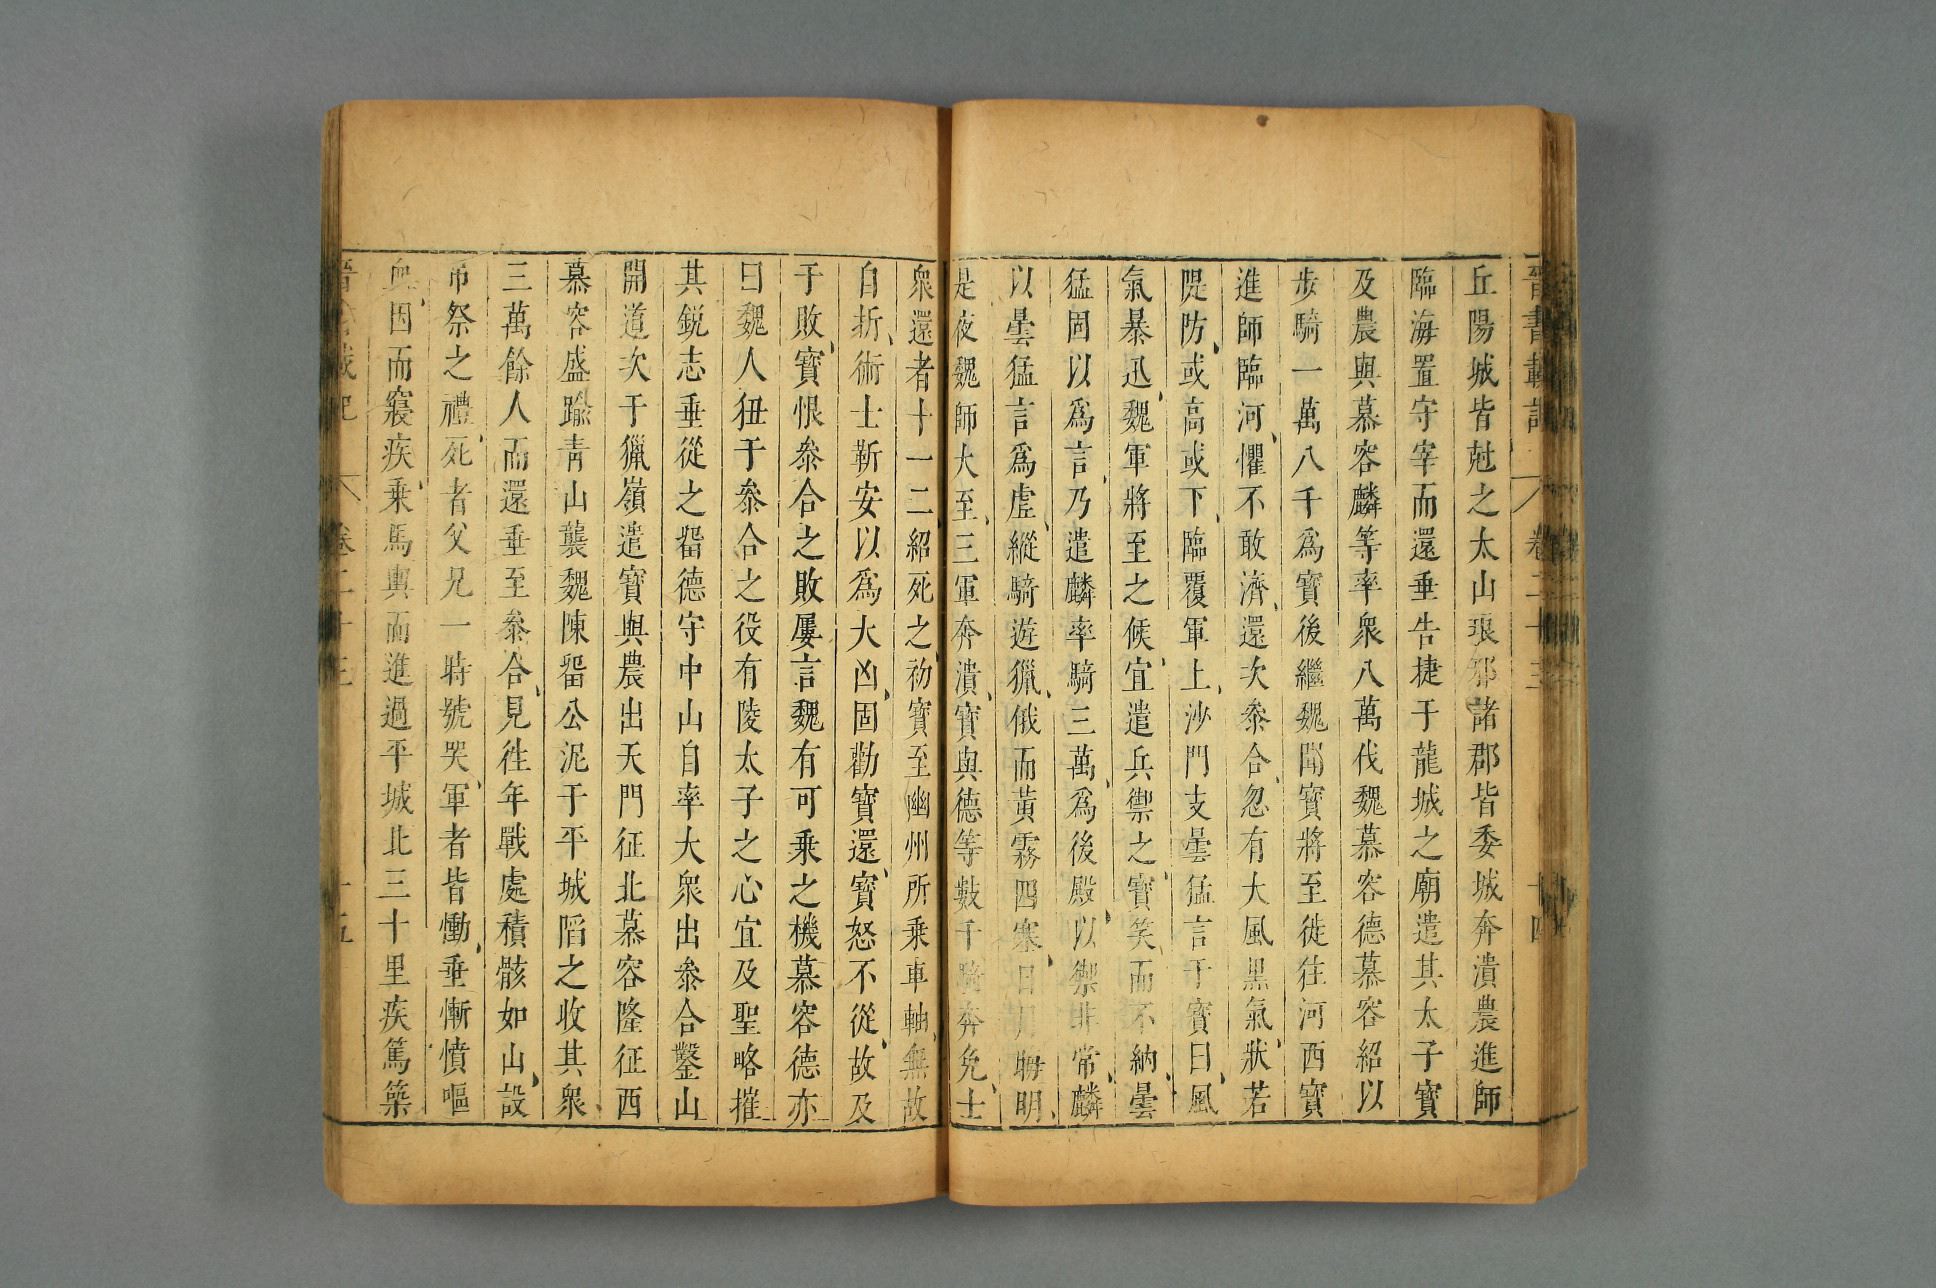 晉書載記 卷二十三 十四
丘陽城皆尅之太山琅邪諸郡皆委城奔潰農進師
臨海置守宰而還垂告捷于龍城之廟遣其太子寶
及農與慕容麟等率衆八萬伐魏慕容德慕容紹以
步騎一萬八千爲寶後繼魏聞寶將至徙往河西寶
進師臨河懼不敢濟還次參合忽有大風黑氣狀若
隄防或高或下臨覆軍上沙門支曇猛言于寶曰風
氣暴迅魏軍將至之候宜遣兵禦之寶笑而不納曇
猛固以爲言乃遣麟率騎三萬爲後殿以禦非常麟
以曇猛言爲虛縱騎遊獵俄而黃霧四塞日月晦明
是夜魏師大至三軍奔潰寶與德等數千騎奔免士
衆還者十一二紹死之初寶至幽州所乗車軸無故
自折術士靳安以爲大凶固勸寶還寶怒不從故及
于敗寶恨參合之敗屢言魏有可乗之機慕容德亦
曰魏人狃于參合之役有陵太子之心宜及聖略摧
其鋭志垂從之畱德守中山自率大衆出參合鑿山
開道次于獵嶺遣寶與農出天門征北慕容隆征西
慕容盛踰青山襲魏陳畱公泥于平城陷之收其衆
三萬餘人而還垂至參合見徃年戰處積骸如山設
弔祭之禮死者父兄一時號哭軍者皆慟垂慚憤嘔
血因而寢疾乗馬輿而進過平城北三十里疾篤築
晉書載記 卷二十三 十五